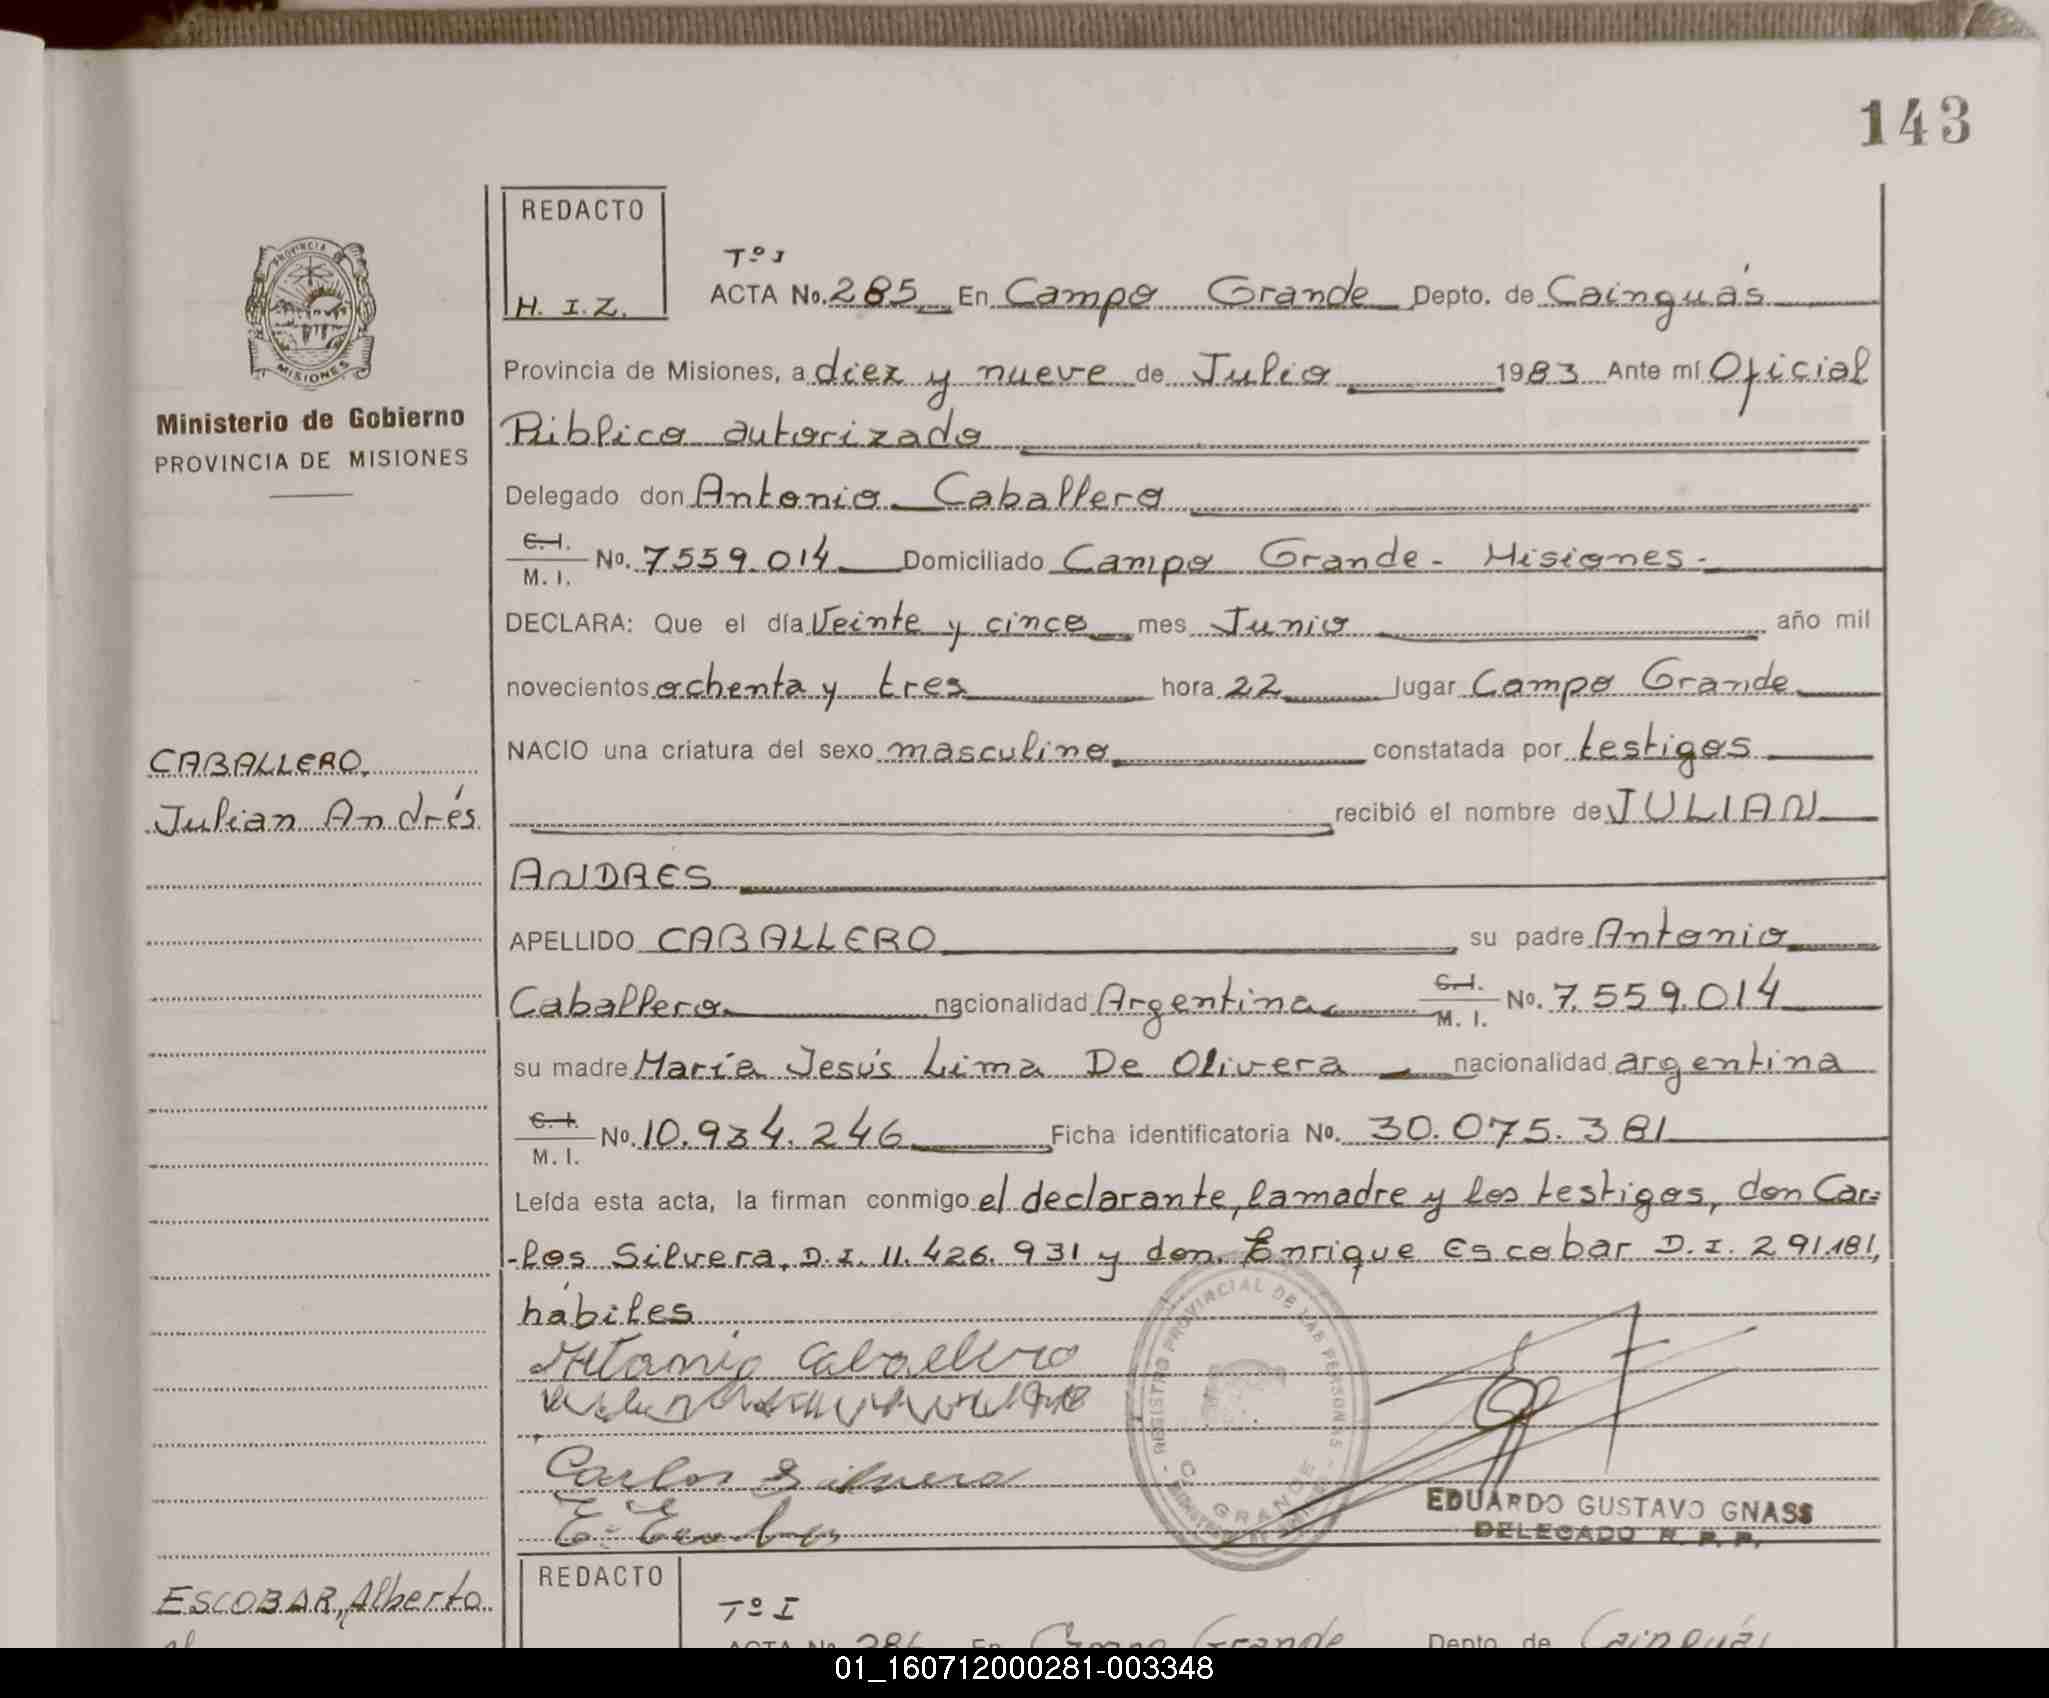 143
REDACTO
H. I. Z.
Tº I
ACTA No. 285 En Campo Grande Depto. de Cainguás
PROVINCIA
MISIONES
Ministerio de Gobierno
PROVINCIA DE MISIONES
Provincia de Misiones, a diez y nueve de Julio 1983 Ante mí Oficial
Público autorizado
Delegado don Antonio Caballero
C. I.
M. I. No. 7559.014 Domiciliado Campo Grande - Misiones -
DECLARA: Que el día Veinte y cinco mes Junio año mil
novecientos ochenta y tres hora 22 lugar Campo Grande
NACIO una criatura del sexo masculino constatada por testigos
CABALLERO,
Julian Andrés
recibió el nombre de JULIAN
ANDRES
APELLIDO CABALLERO su padre Antonio
Caballero nacionalidad Argentina C. I.
M. I. No. 7.559.014
su madre María Jesús Lima De Olivera nacionalidad argentina
C. I.
M. I. No. 10.934.246 Ficha identificatoria No. 30.075.381
Leída esta acta, la firman conmigo el declarante, la madre y los testigos, don Car=
-los Silvera, D.I. 11.426.931 y don Enrique Escobar D.I. 291.181,
hábiles
Antonio Caballero
Carlos Silvera
E. Escobar
REGISTRO PROVINCIAL DE LAS PERSONAS
C. GRANDE
EDUARDO GUSTAVO GNASS
DELEGADO R. P. P.
REDACTO
ESCOBAR, Alberto
Tº I
ACTA No. 286 En Campo Grande Depto. de Cainguás
01_160712000281-003348